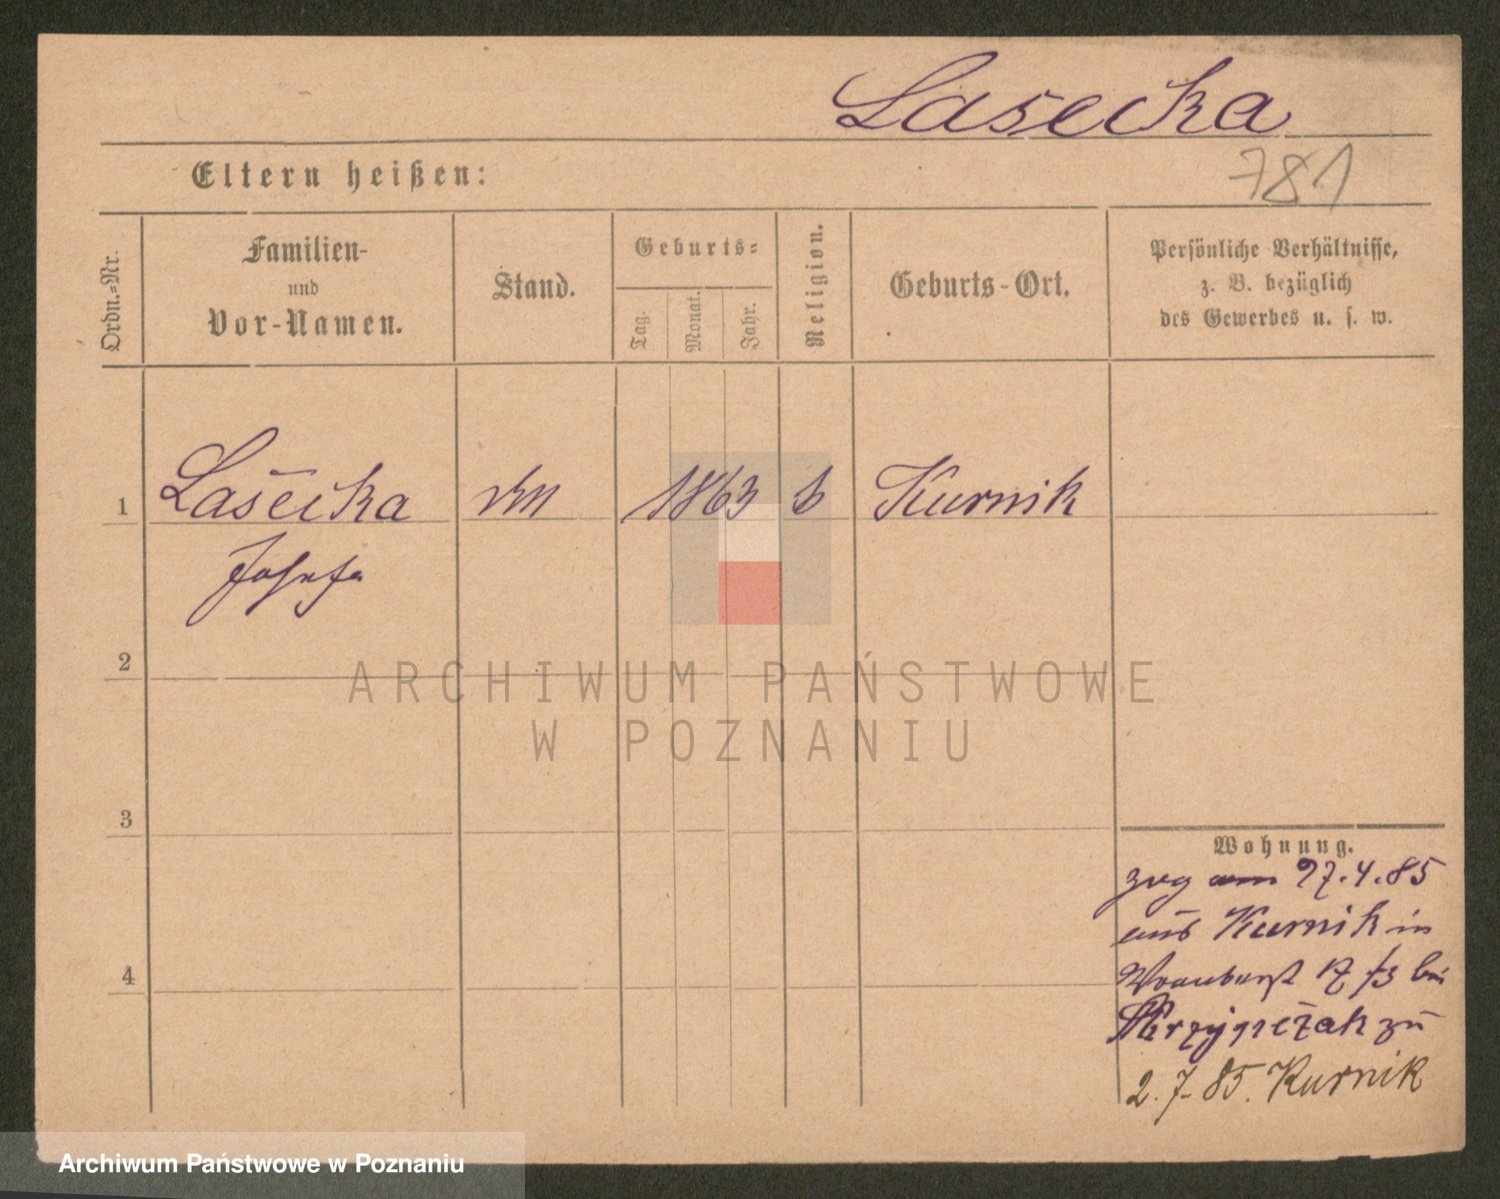 Lasecka
781
Eltern heißen:
Ordn.-Nr.
Familien-
und
Vor-Namen.
Stand.
Geburts-
Tag.
Monat.
Jahr.
Religion.
Geburts-Ort.
Persönliche Verhältnisse,
z. B. bezüglich
des Gewerbes u. s. w.
1
Lasecka
1863
Kurnik
Josefa
2
ARCHIWUM PAŃSTWOWE
W POZNANIU
3
Wohnung.
zog am 27.4.85
aus Kurnik in
bei
zu
4
2.7.85. Kurnik
Archiwum Państwowe w Poznaniu